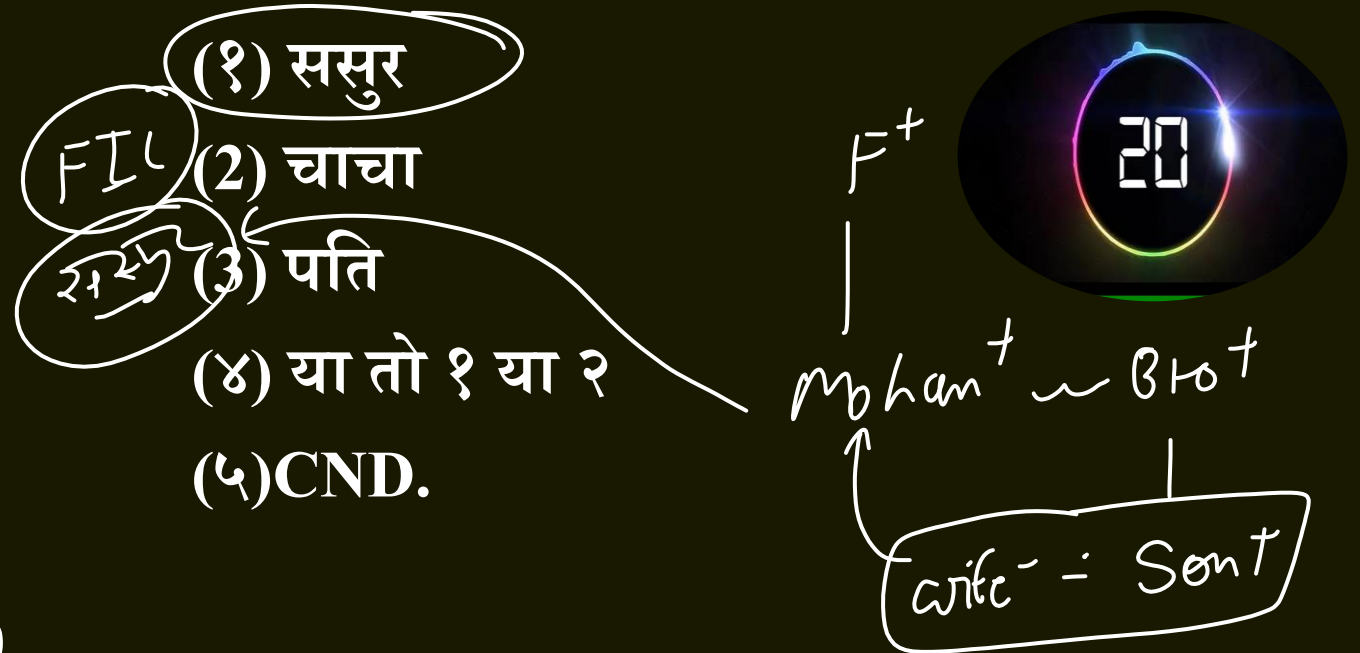 (१) ससुर
FIL
(2) चाचा
(3) पति
(४) या तो १ या २
(५)CND.
F+
20
Mohan+ ~ Bro+
wife- = Son+